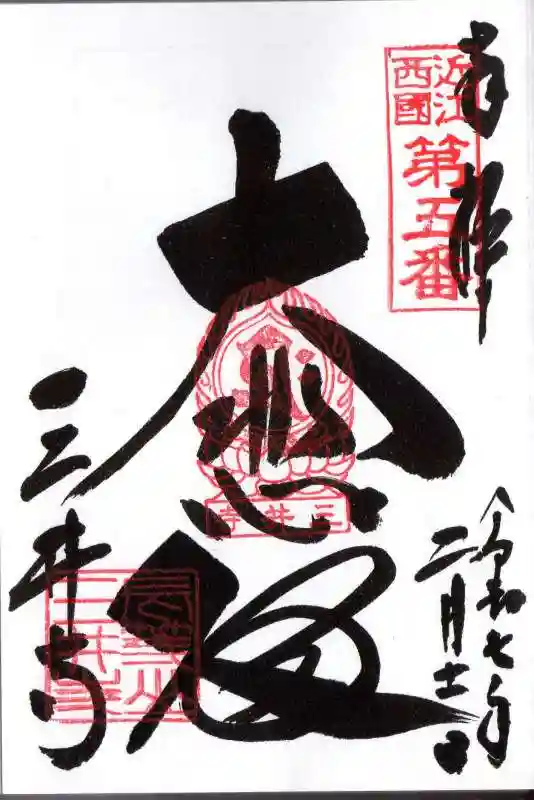 奉拝
近江
西國
第五番
大悲殿
三井寺
三井寺
令和七年
二月十二日